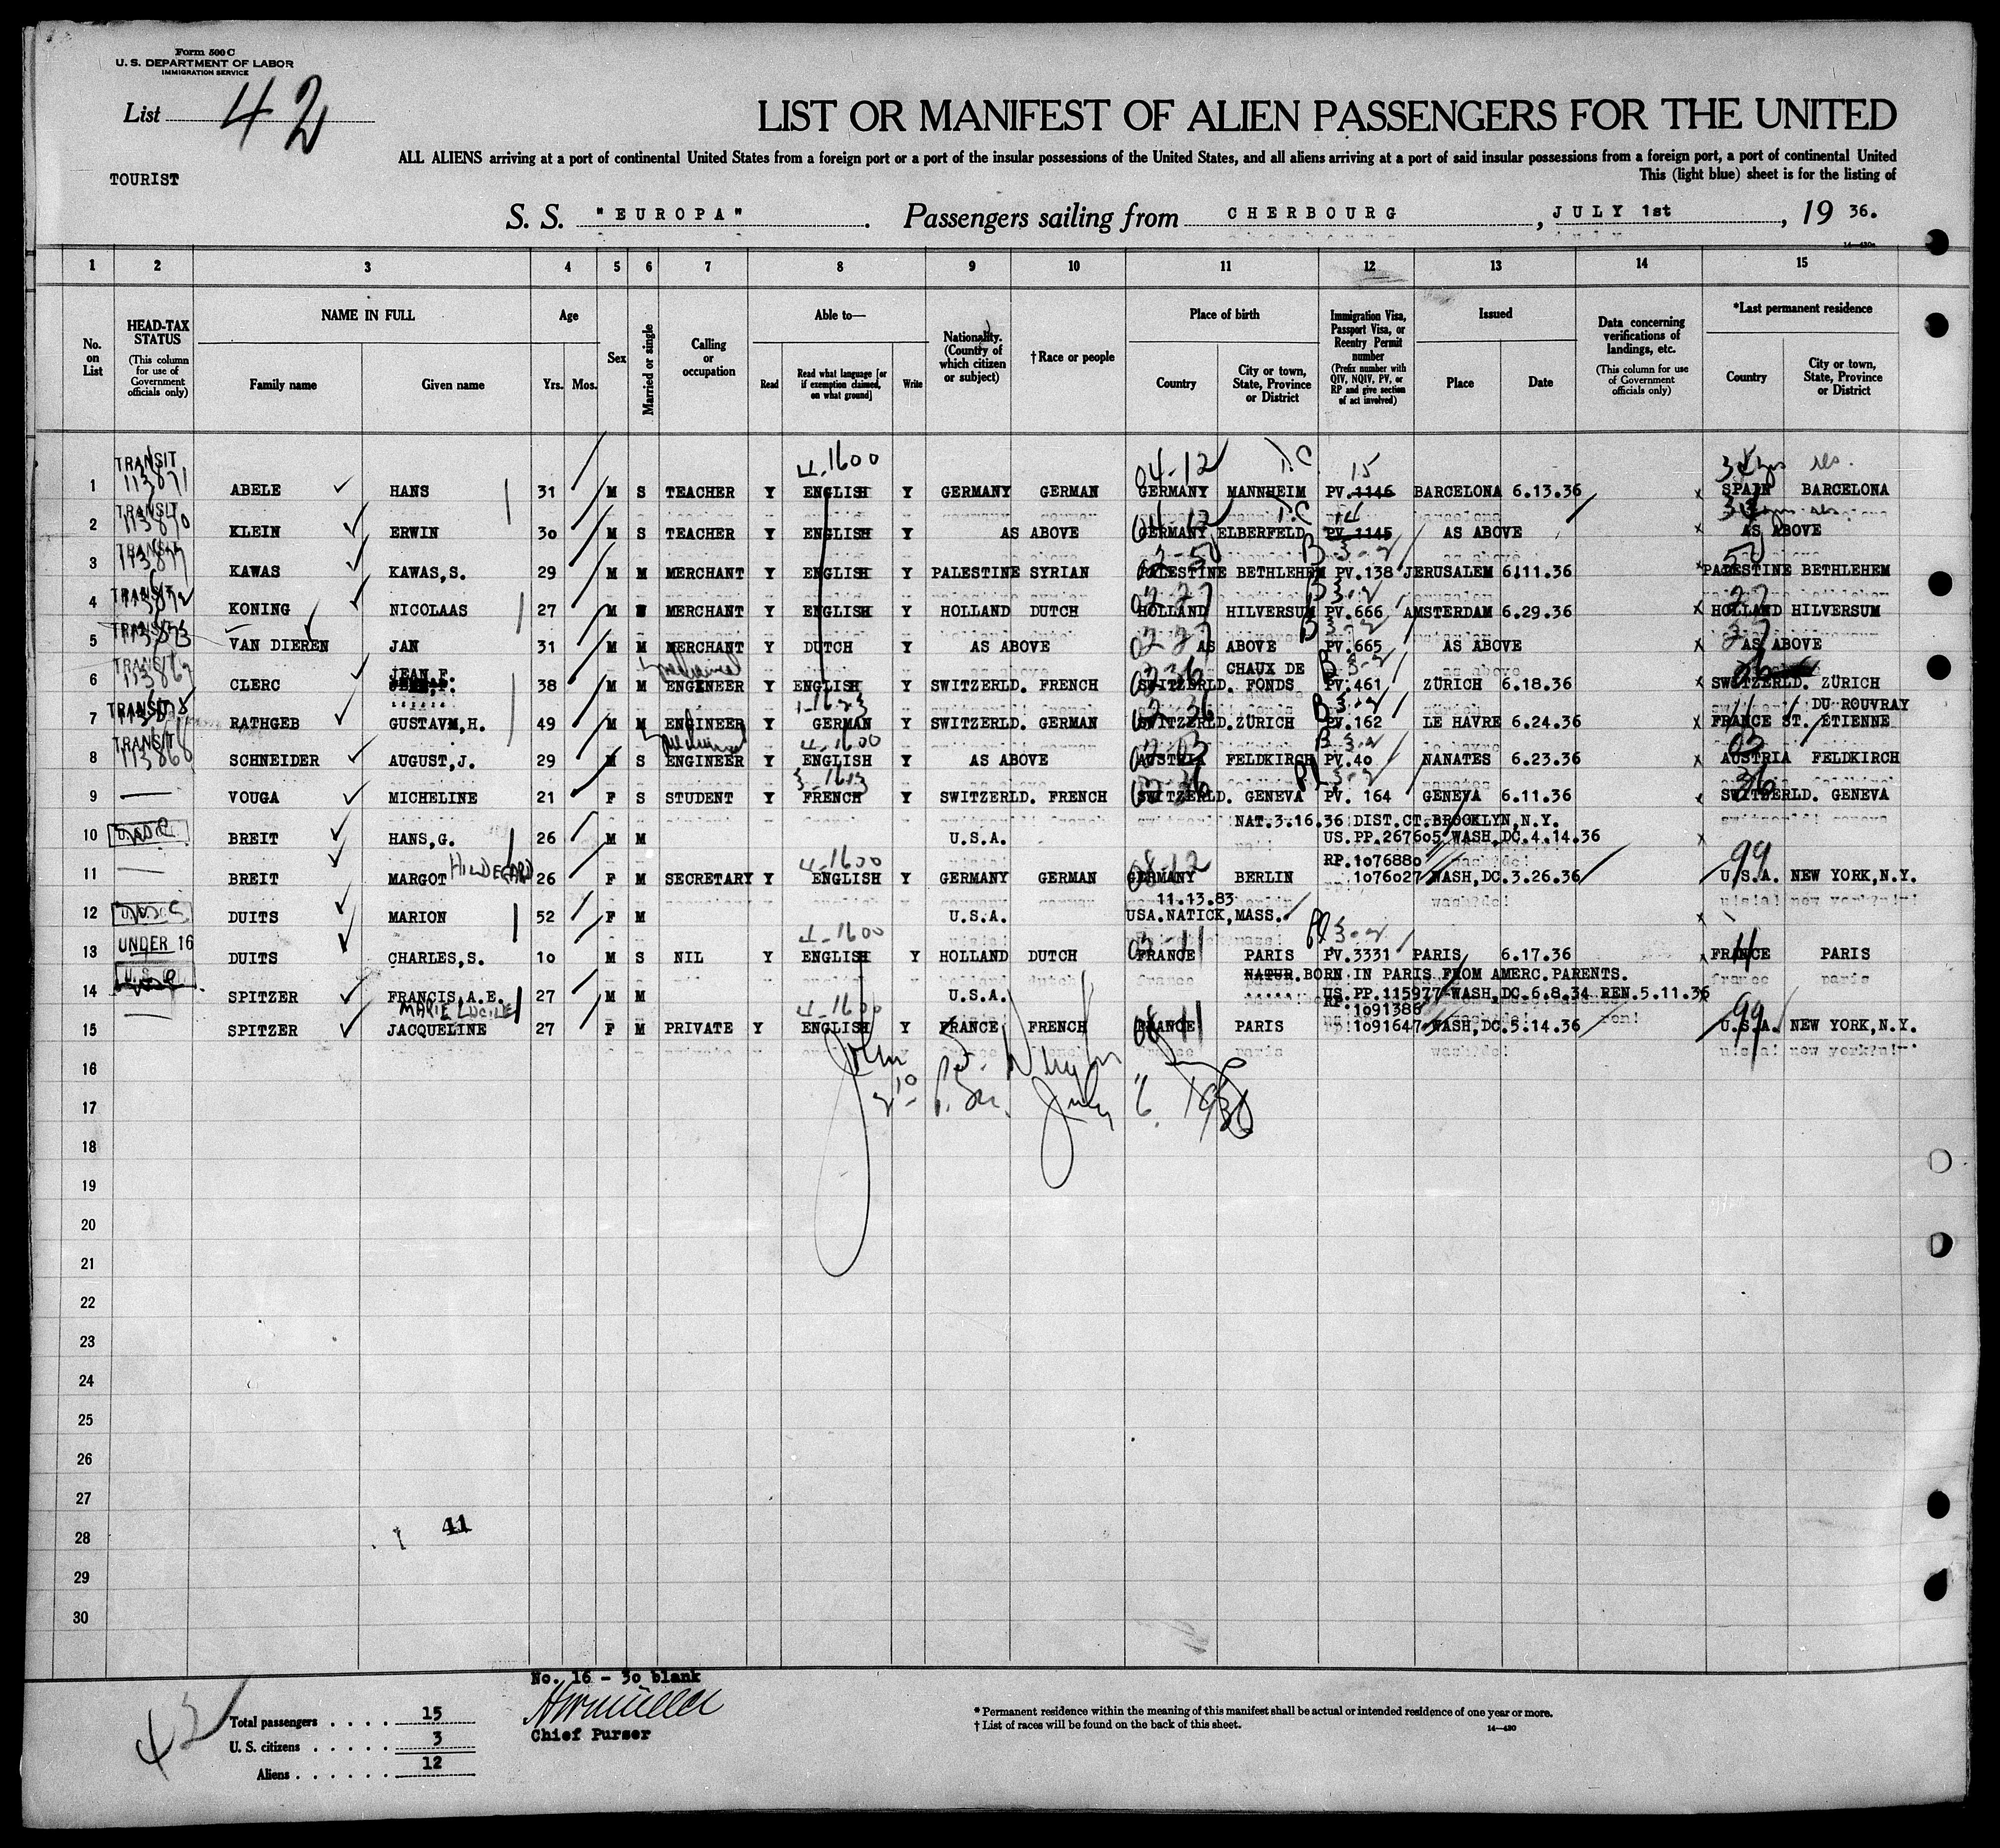 Form 500 C
U. S. DEPARTMENT OF LABOR
IMMIGRATION SERVICE
List 42
LIST OR MANIFEST OF ALIEN PASSENGERS FOR THE UNITED
ALL ALIENS arriving at a port of continental United States from a foreign port or a port of the insular possessions of the United States, and all aliens arriving at a port of said insular possessions from a foreign port, a port of continental United
This (light blue) sheet is for the listing of
TOURIST
S. S. "EUROPA". Passengers sailing from CHERBOURG, JULY 1st, 19 36.
1 2 3 4 5 6 7 8 9 10 11 12 13 14 15
No. on List
HEAD-TAX STATUS (This column for use of Government officials only)
NAME IN FULL Family name Given name
Age Yrs. Mos.
Sex
Married or single
Calling or occupation
Able to— Read Read what language [or if exemption claimed, on what ground] Write
Nationality. (Country of which citizen or subject)
†Race or people
Place of birth Country City or town, State, Province or District
Immigration Visa, Passport Visa, or Reentry Permit number (Prefix number with QIV, NQIV, PV, or RP and give section of act involved)
Issued Place Date
Data concerning verifications of landings, etc. (This column for use of Government officials only)
*Last permanent residence Country City or town, State, Province or District
4-1600 04-12 15
1 TRANSIT 113871 ABELE HANS 31 M S TEACHER Y ENGLISH Y GERMANY GERMAN GERMANY MANNHEIM PV.1146 BARCELONA 6.13.36 SPAIN BARCELONA
2 TRANSIT 113870 KLEIN ERWIN 30 M S TEACHER Y ENGLISH Y AS ABOVE GERMANY ELBERFELD PV.1145 AS ABOVE AS ABOVE
3 TRANSIT KAWAS KAWAS,S. 29 M M MERCHANT Y ENGLISH Y PALESTINE SYRIAN PALESTINE BETHLEHEM PV.138 JERUSALEM 6.11.36 PALESTINE BETHLEHEM
4 TRANSIT 113872 KONING NICOLAAS 27 M MERCHANT Y ENGLISH Y HOLLAND DUTCH HOLLAND HILVERSUM PV.666 AMSTERDAM 6.29.36 HOLLAND HILVERSUM
5 TRANSIT VAN DIEREN JAN 31 M M MERCHANT Y DUTCH Y AS ABOVE AS ABOVE PV.665 AS ABOVE AS ABOVE
JEAN,F. CHAUX DE
6 TRANSIT CLERC 38 M M ENGINEER Y ENGLISH Y SWITZERLD. FRENCH SWITZERLD. FONDS PV.461 ZÜRICH 6.18.36 SWITZERLD. ZÜRICH
1-1623 DU ROUVRAY
7 TRANSIT RATHGEB GUSTAVM,H. 49 M M ENGINEER Y GERMAN Y SWITZERLD. GERMAN SWITZERLD. ZÜRICH PV.162 LE HAVRE 6.24.36 FRANCE ST. ÉTIENNE
4-1600
8 TRANSIT 113868 SCHNEIDER AUGUST,J. 29 M S ENGINEER Y ENGLISH Y AS ABOVE AUSTRIA FELDKIRCH PV.40 NANATES 6.23.36 AUSTRIA FELDKIRCH
3-1613
9 VOUGA MICHELINE 21 F S STUDENT Y FRENCH Y SWITZERLD. FRENCH SWITZERLD. GENEVA PV. 164 GENEVA 6.11.36 SWITZERLD. GENEVA
NAT.3.16.36 DIST.CT.BROOKLYN,N.Y.
10 BREIT HANS,G. 26 M M U.S.A. US.PP.267605 WASH,DC.4.14.36
HILDEGARD 4-1600 08-12 RP.1076880 99
11 BREIT MARGOT 26 F M SECRETARY Y ENGLISH Y GERMANY GERMAN GERMANY BERLIN 1076027 WASH,DC.3.26.36 U.S.A. NEW YORK,N.Y.
11.13.83
12 DUITS MARION 52 F M U.S.A. USA.NATICK,MASS.
UNDER 16 4-1600
13 DUITS CHARLES,S. 10 M S NIL Y ENGLISH Y HOLLAND DUTCH FRANCE PARIS PV.3331 PARIS 6.17.36 FRANCE PARIS
NATUR.BORN IN PARIS FROM AMERC.PARENTS.
14 SPITZER FRANCIS,A.E. 27 M M U.S.A. US.PP.115977 WASH,DC.6.8.34 REN.5.11.36
MARIE LUCILE 4-1600 RP.1091386 99
15 SPITZER JACQUELINE 27 F M PRIVATE Y ENGLISH Y FRANCE FRENCH FRANCE PARIS 1091647 WASH,DC.5.14.36 U.S.A. NEW YORK,N.Y.
16
17 July 6. 1936
18
19
20
21
22
23
24
25
26
27
28 41
29
30
No. 16 - 30 blank
Total passengers . . . . 15
U. S. citizens . . . . . 3
Aliens . . . . . . 12
Chief Purser
42
* Permanent residence within the meaning of this manifest shall be actual or intended residence of one year or more.
† List of races will be found on the back of this sheet.
14—430